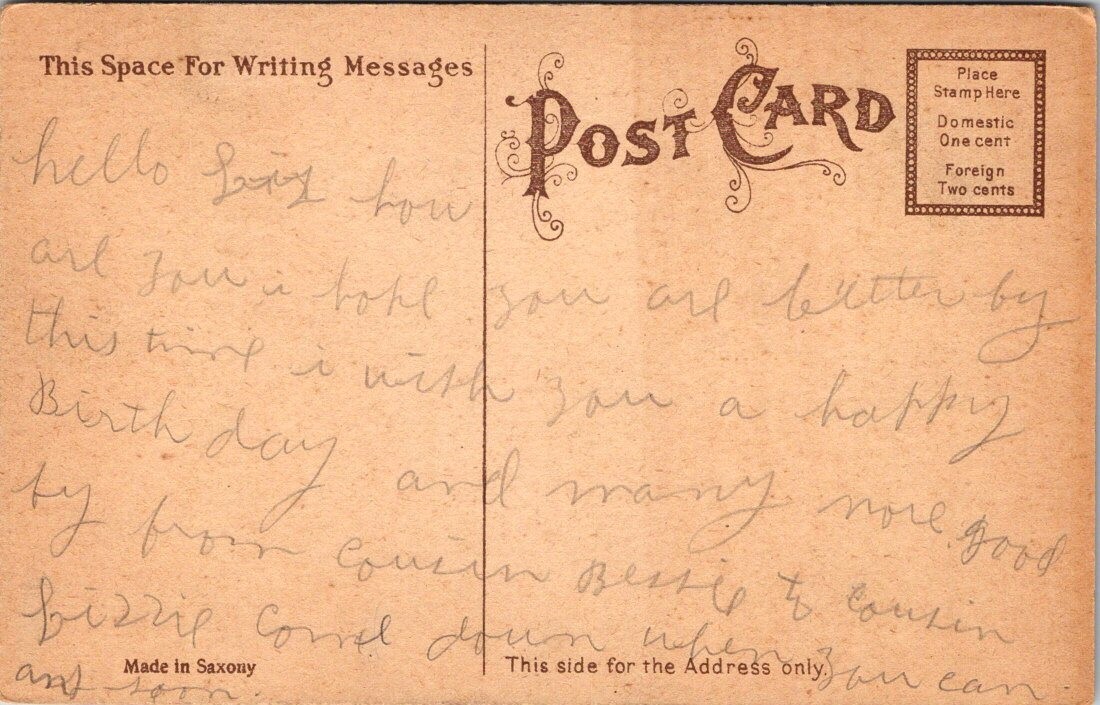 This Space For Writing Messages
POST CARD
Place
Stamp Here
Domestic
One cent
Foreign
Two cents
hello Liz how
are you i hope you are better by
this time i wish you a happy
Birth day and many more good
by from cousin Bessie to cousin
Lizzie Come down when you can
and soon.
Made in Saxony
This side for the Address only.